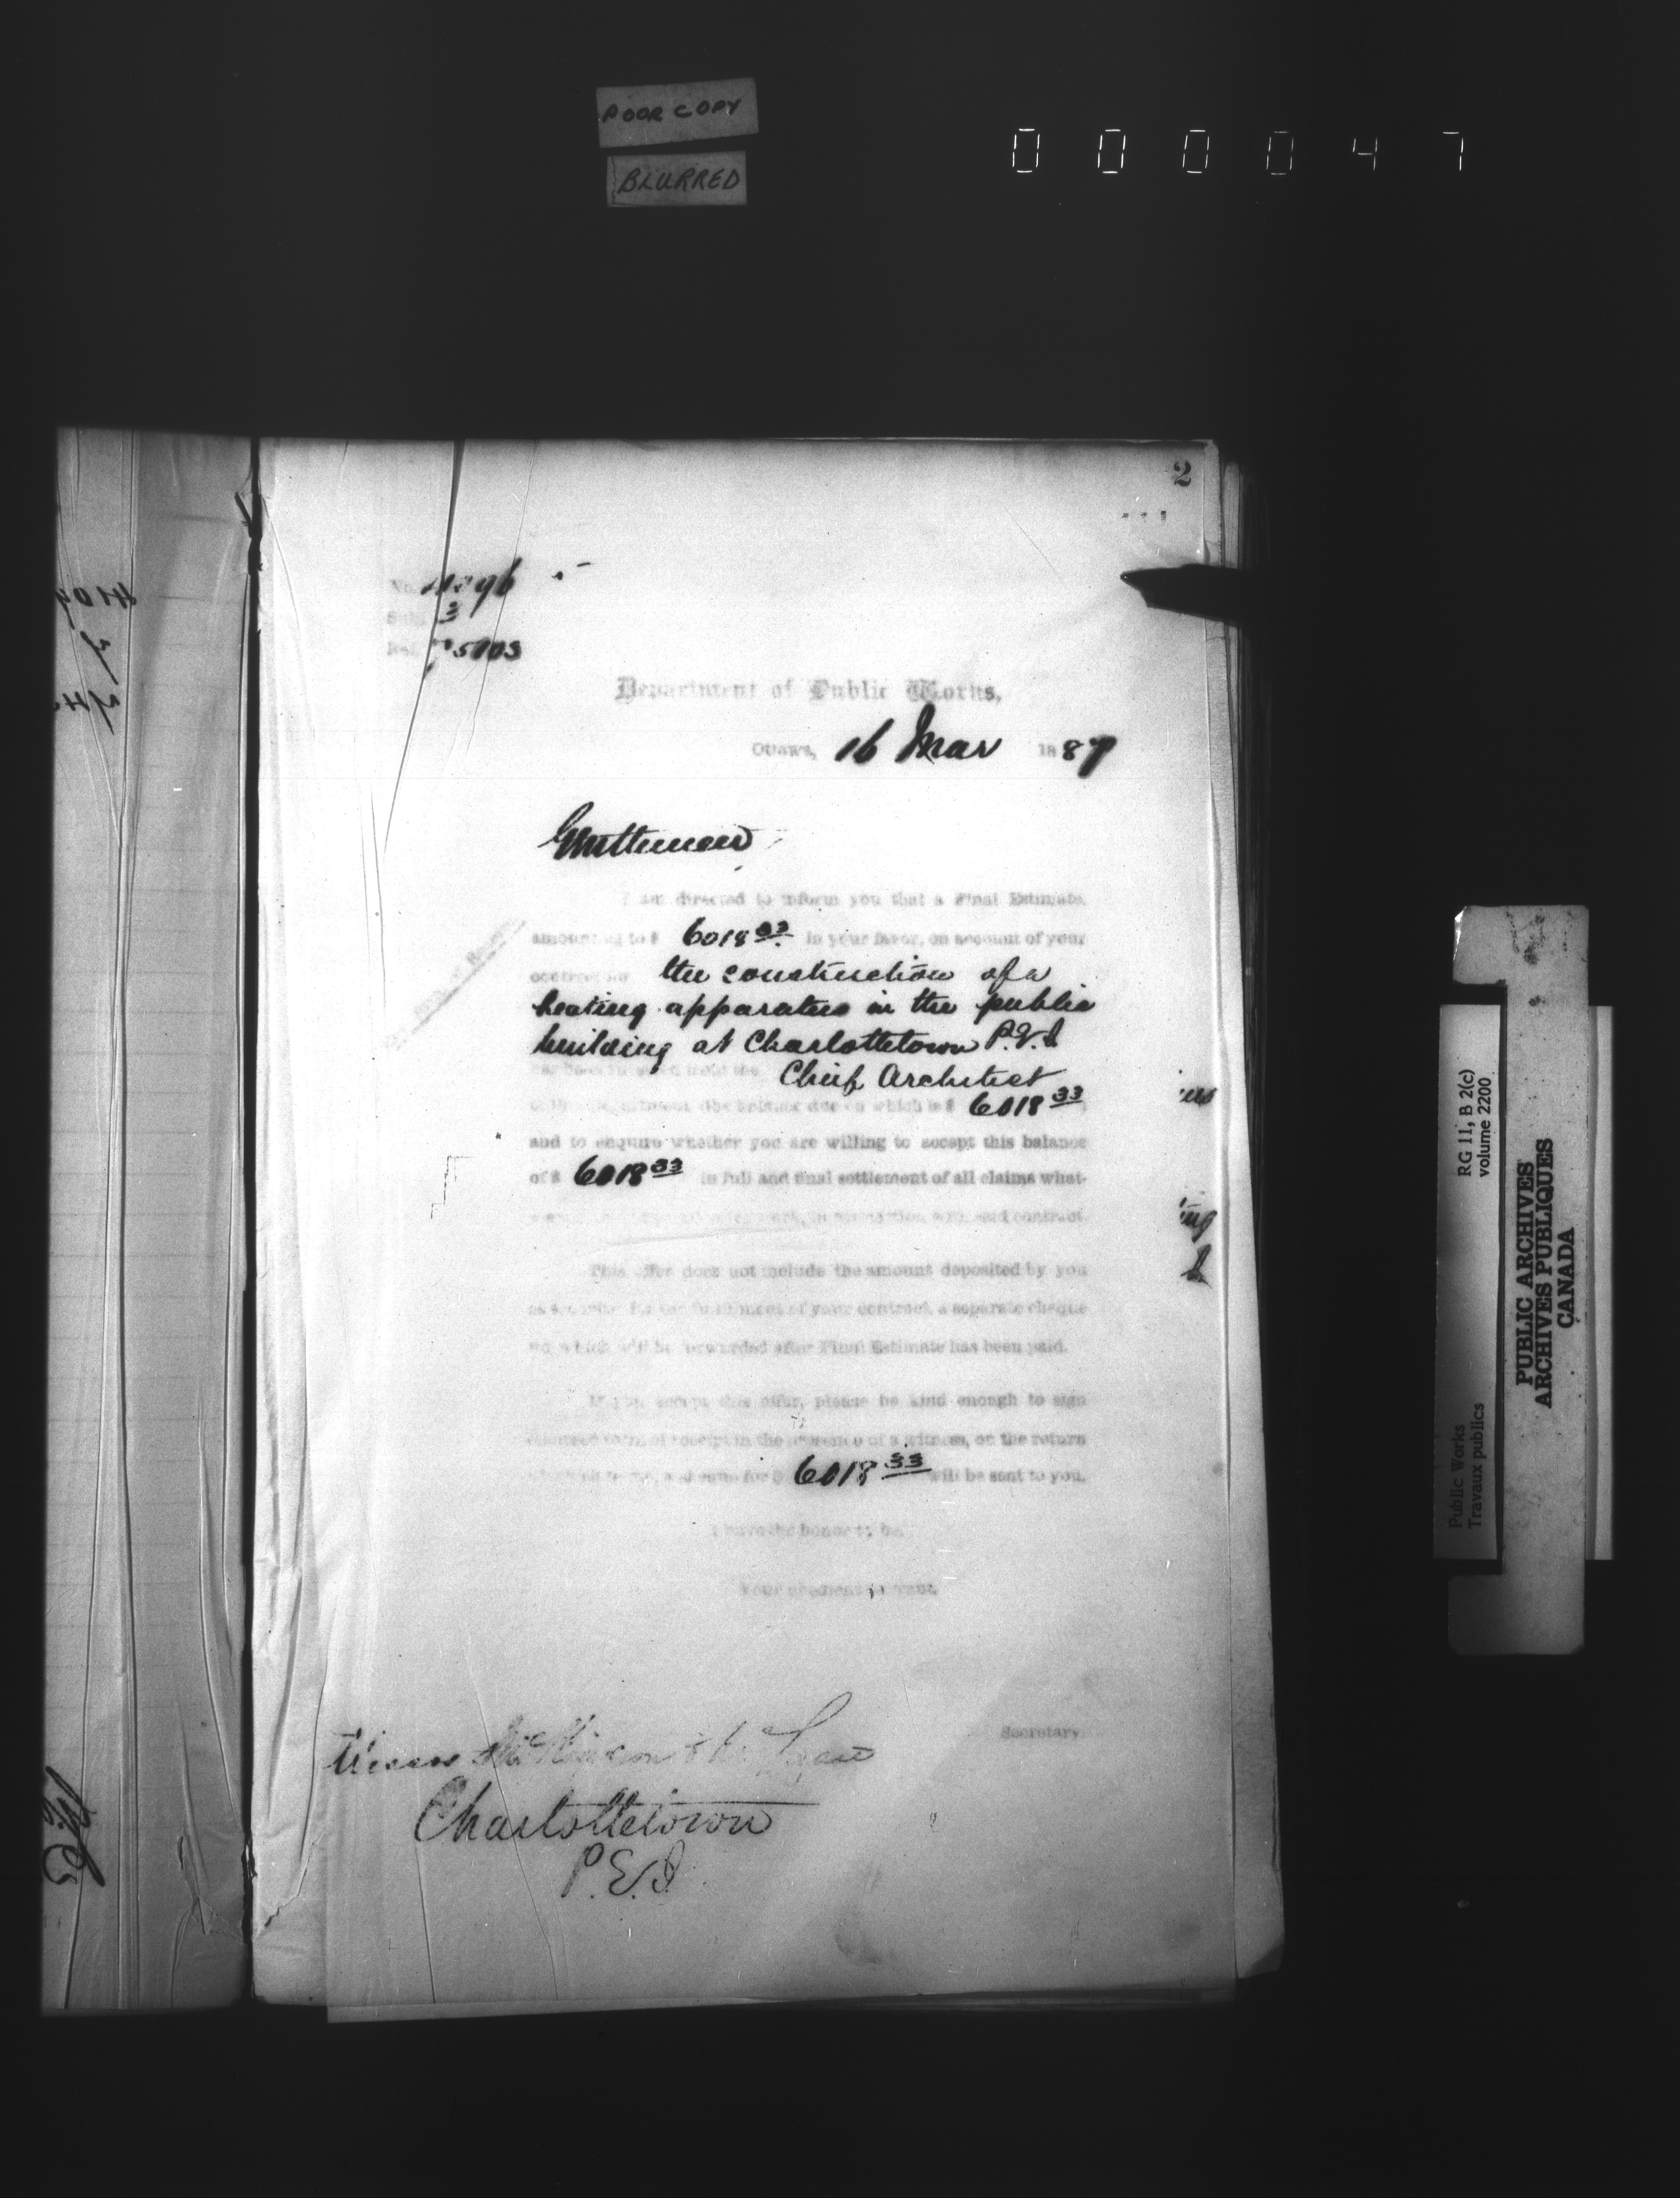 POOR COPY
BLURRED
000047
2
No.
Sub. 3
Department of Public Works,
Ottawa, 16 Mar 1887
Gentlemen
I am directed to inform you that a Final Estimate,
amounting to $ 6018 33 in your favor, on account of your
contract for the construction of a
heating apparatus in the public
building at Charlottetown P.E.I
Chief Architect
balance due on which is $ 6018 33
and to enquire whether you are willing to accept this balance
of $ 6018 33 in full and final settlement of all claims what-
in connection with said contract.
This offer does not include the amount deposited by you
as security for the fulfilment of your contract, a separate cheque
for which will be forwarded after Final Estimate has been paid.
If you accept this offer, please be kind enough to sign
form of receipt in the presence of a witness, on the return
cheque for $ 6018 33 will be sent to you.
I have the honor to be,
Your obedient servant,
Secretary.
Messrs
Charlottetown
P.E.I.
us
ing
RG 11, B 2(c)
volume 2200
Public Works
Travaux publics
PUBLIC ARCHIVES
ARCHIVES PUBLIQUES
CANADA